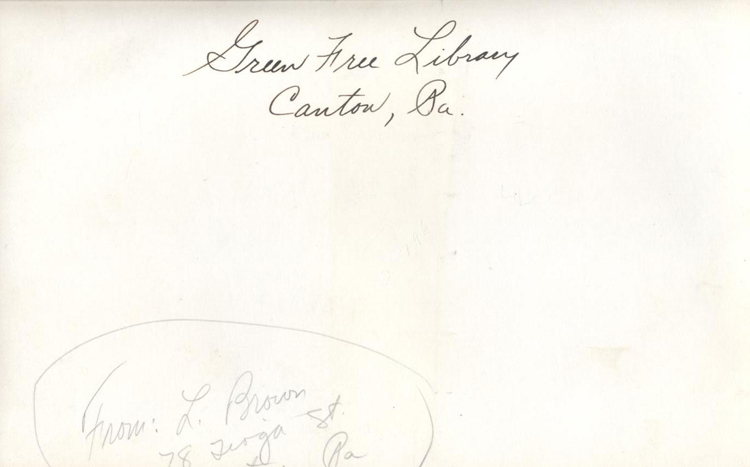 Green Free Library
Canton, Pa.
From: L. Brown
78 Tioga St.
Pa